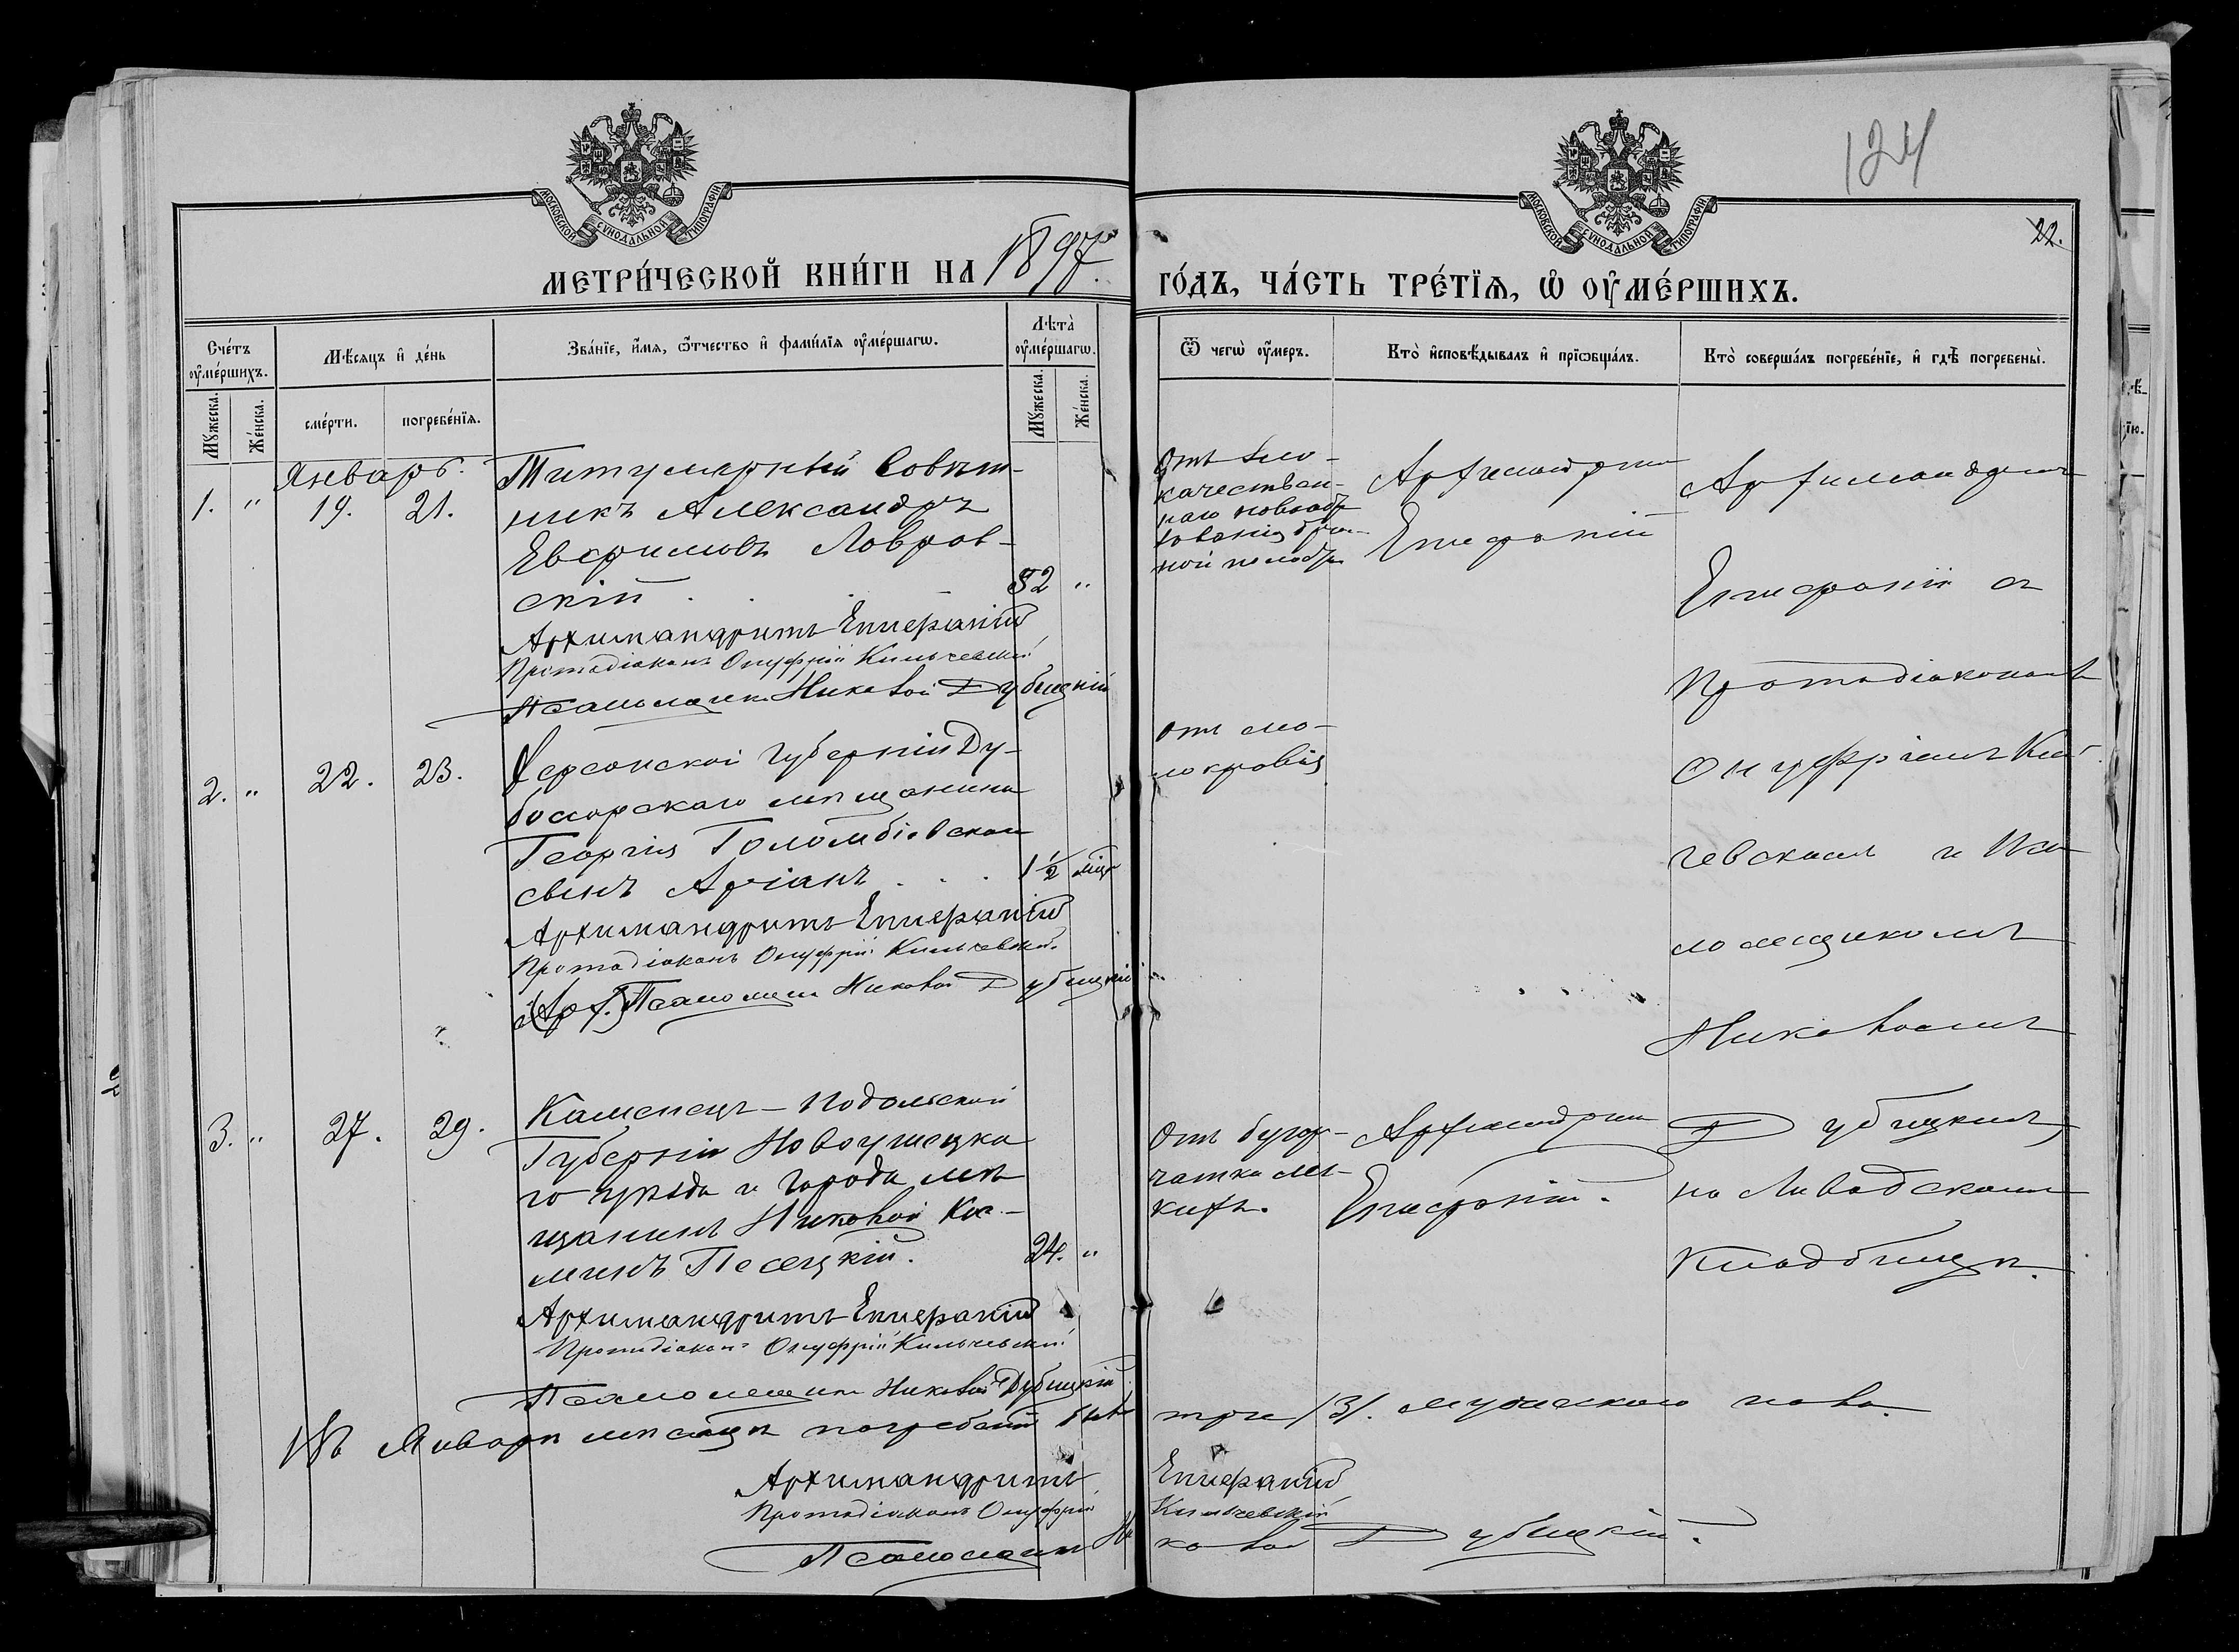 124
22.
МОСКОВСКОЙ СѴНОДАЛЬНОЙ ТИПОГРАФІИ
МОСКОВСКОЙ СѴНОДАЛЬНОЙ ТИПОГРАФІИ
МЕТРИ́ЧЕСКОЙ КНИ́ГИ НА 1897
ГО́ДЪ, ЧА́СТЬ ТРЕ́ТЇѦ, Ѡ ОУМЕ́РШИХЪ.
Сче́тъ оуме́ршихъ.
Мѣ́сяцъ и де́нь
Зва́нїе, и́мя, ѻ́тчество и фами́лїя оуме́ршагѡ.
Лѣта̀ оуме́ршагѡ.
Мꙋ́жеска.
Же́нска.
сме́рти.
погребе́нїя.
Мꙋ́жеска.
Же́нска.
Ѿ чегѡ̀ оу́меръ.
Кто̀ исповѣ́дывалъ и прїѡбща́лъ.
Кто̀ соверша́лъ погребе́нїе, и гдѣ̀ погребены̀.
Январь.
1. " 19. 21.
Титулярный Совѣт-
никъ Александръ
Евфимовъ Лавров-
скій 52 "
Архимандритъ Епифаній
Протодіаконъ Онуфрій Кильчевскій
Псаломщик Николай Дубицкій
Отъ зло-
качествен-
наго новообра-
зованія
Архимандрит
Епифаній
Архимандритъ
Епифаній съ
Протодіакономъ
Онуфріемъ Киль-
чевскимъ и Пса-
ломщикомъ
Николаемъ
Дубицкимъ,
на Ливадскомъ
Кладбищѣ.
2. " 22. 23.
Херсонской губерніи Ду-
боссарскаго мѣщанина
Георгія Голомбіовскаго
сынъ Аріанъ 1½ мѣс
Архимандритъ Епифаній
Протодіаконъ Онуфрій Кильчевскій.
Псаломщик Николай Дубицкій
отъ ма-
локровія
3. " 27. 29.
Каменецъ-Подольской
Губерніи Новоушицка-
го уѣзда и города мѣ-
щанинъ Николай
Песецкій. 24. "
Архимандритъ Епифаній
Протодіаконъ Онуфрій Кильчевскій
Псаломщик Николай Дубицкій
Отъ бугор-
чатки лег-
кихъ.
Архимандрит
Епифаній.
Въ Январѣ мѣсяцѣ погребено три /3/. мужескаго пола.
Архимандритъ Епифаній
Протодіаконъ Онуфрій Кильчевскій
Псаломщик Николай Дубицкій.